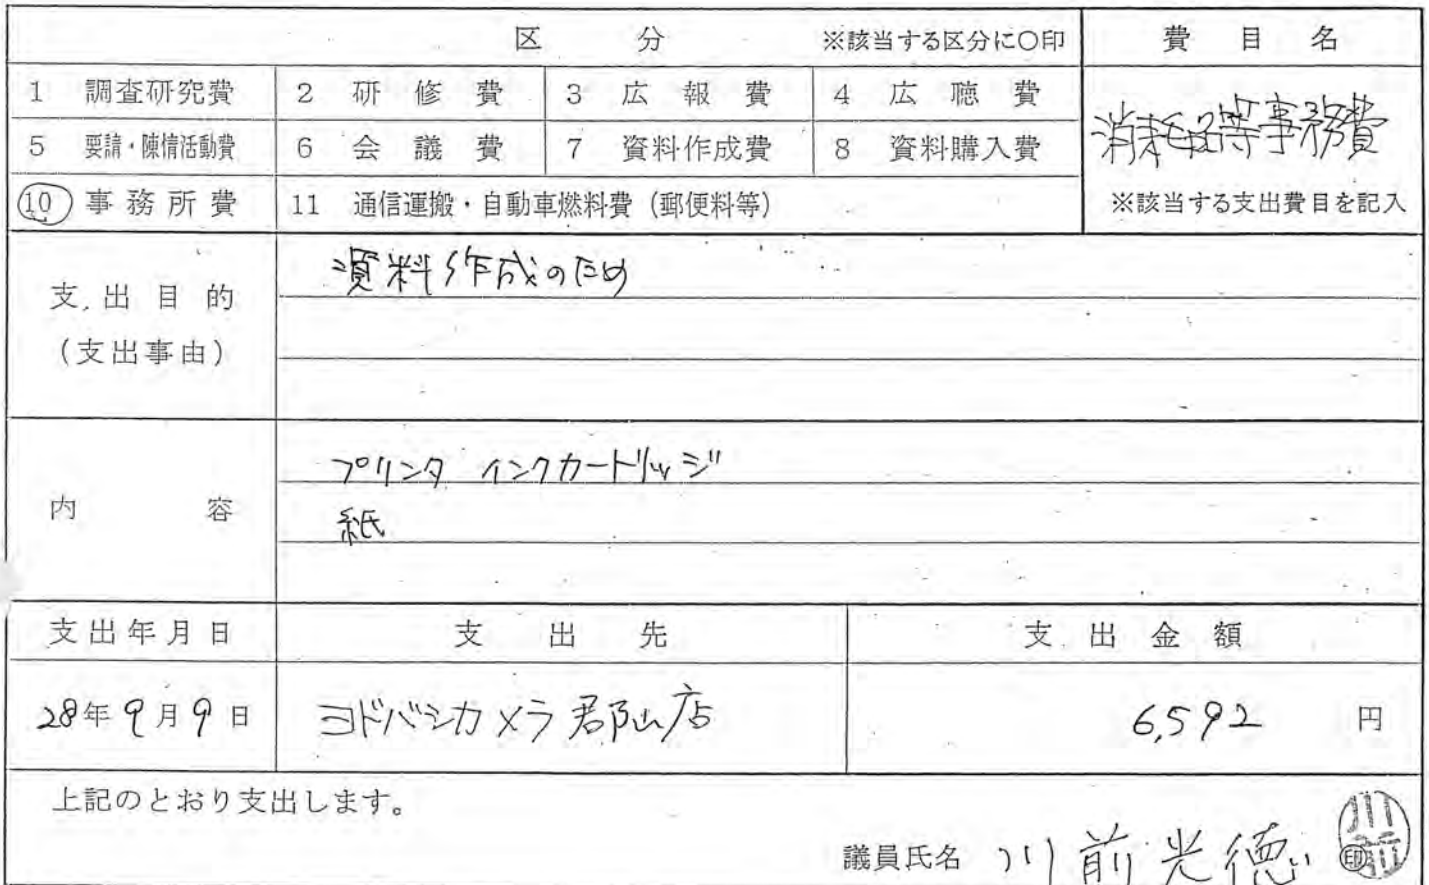 区分 ※該当する区分に○印 費目名
1 調査研究費 2 研修費 3 広報費 4 広聴費
5 要請・陳情活動費 6 会議費 7 資料作成費 8 資料購入費
消耗品等事務費
10 事務所費 11 通信運搬・自動車燃料費（郵便料等） ※該当する支出費目を記入
支出目的
（支出事由）
資料作成のため
内容
プリンタ インクカートリッジ
紙
支出年月日 支出先 支出金額
28年9月9日 ヨドバシカメラ郡山店 6,592 円
上記のとおり支出します。
議員氏名 川前光徳 ㊞
川前